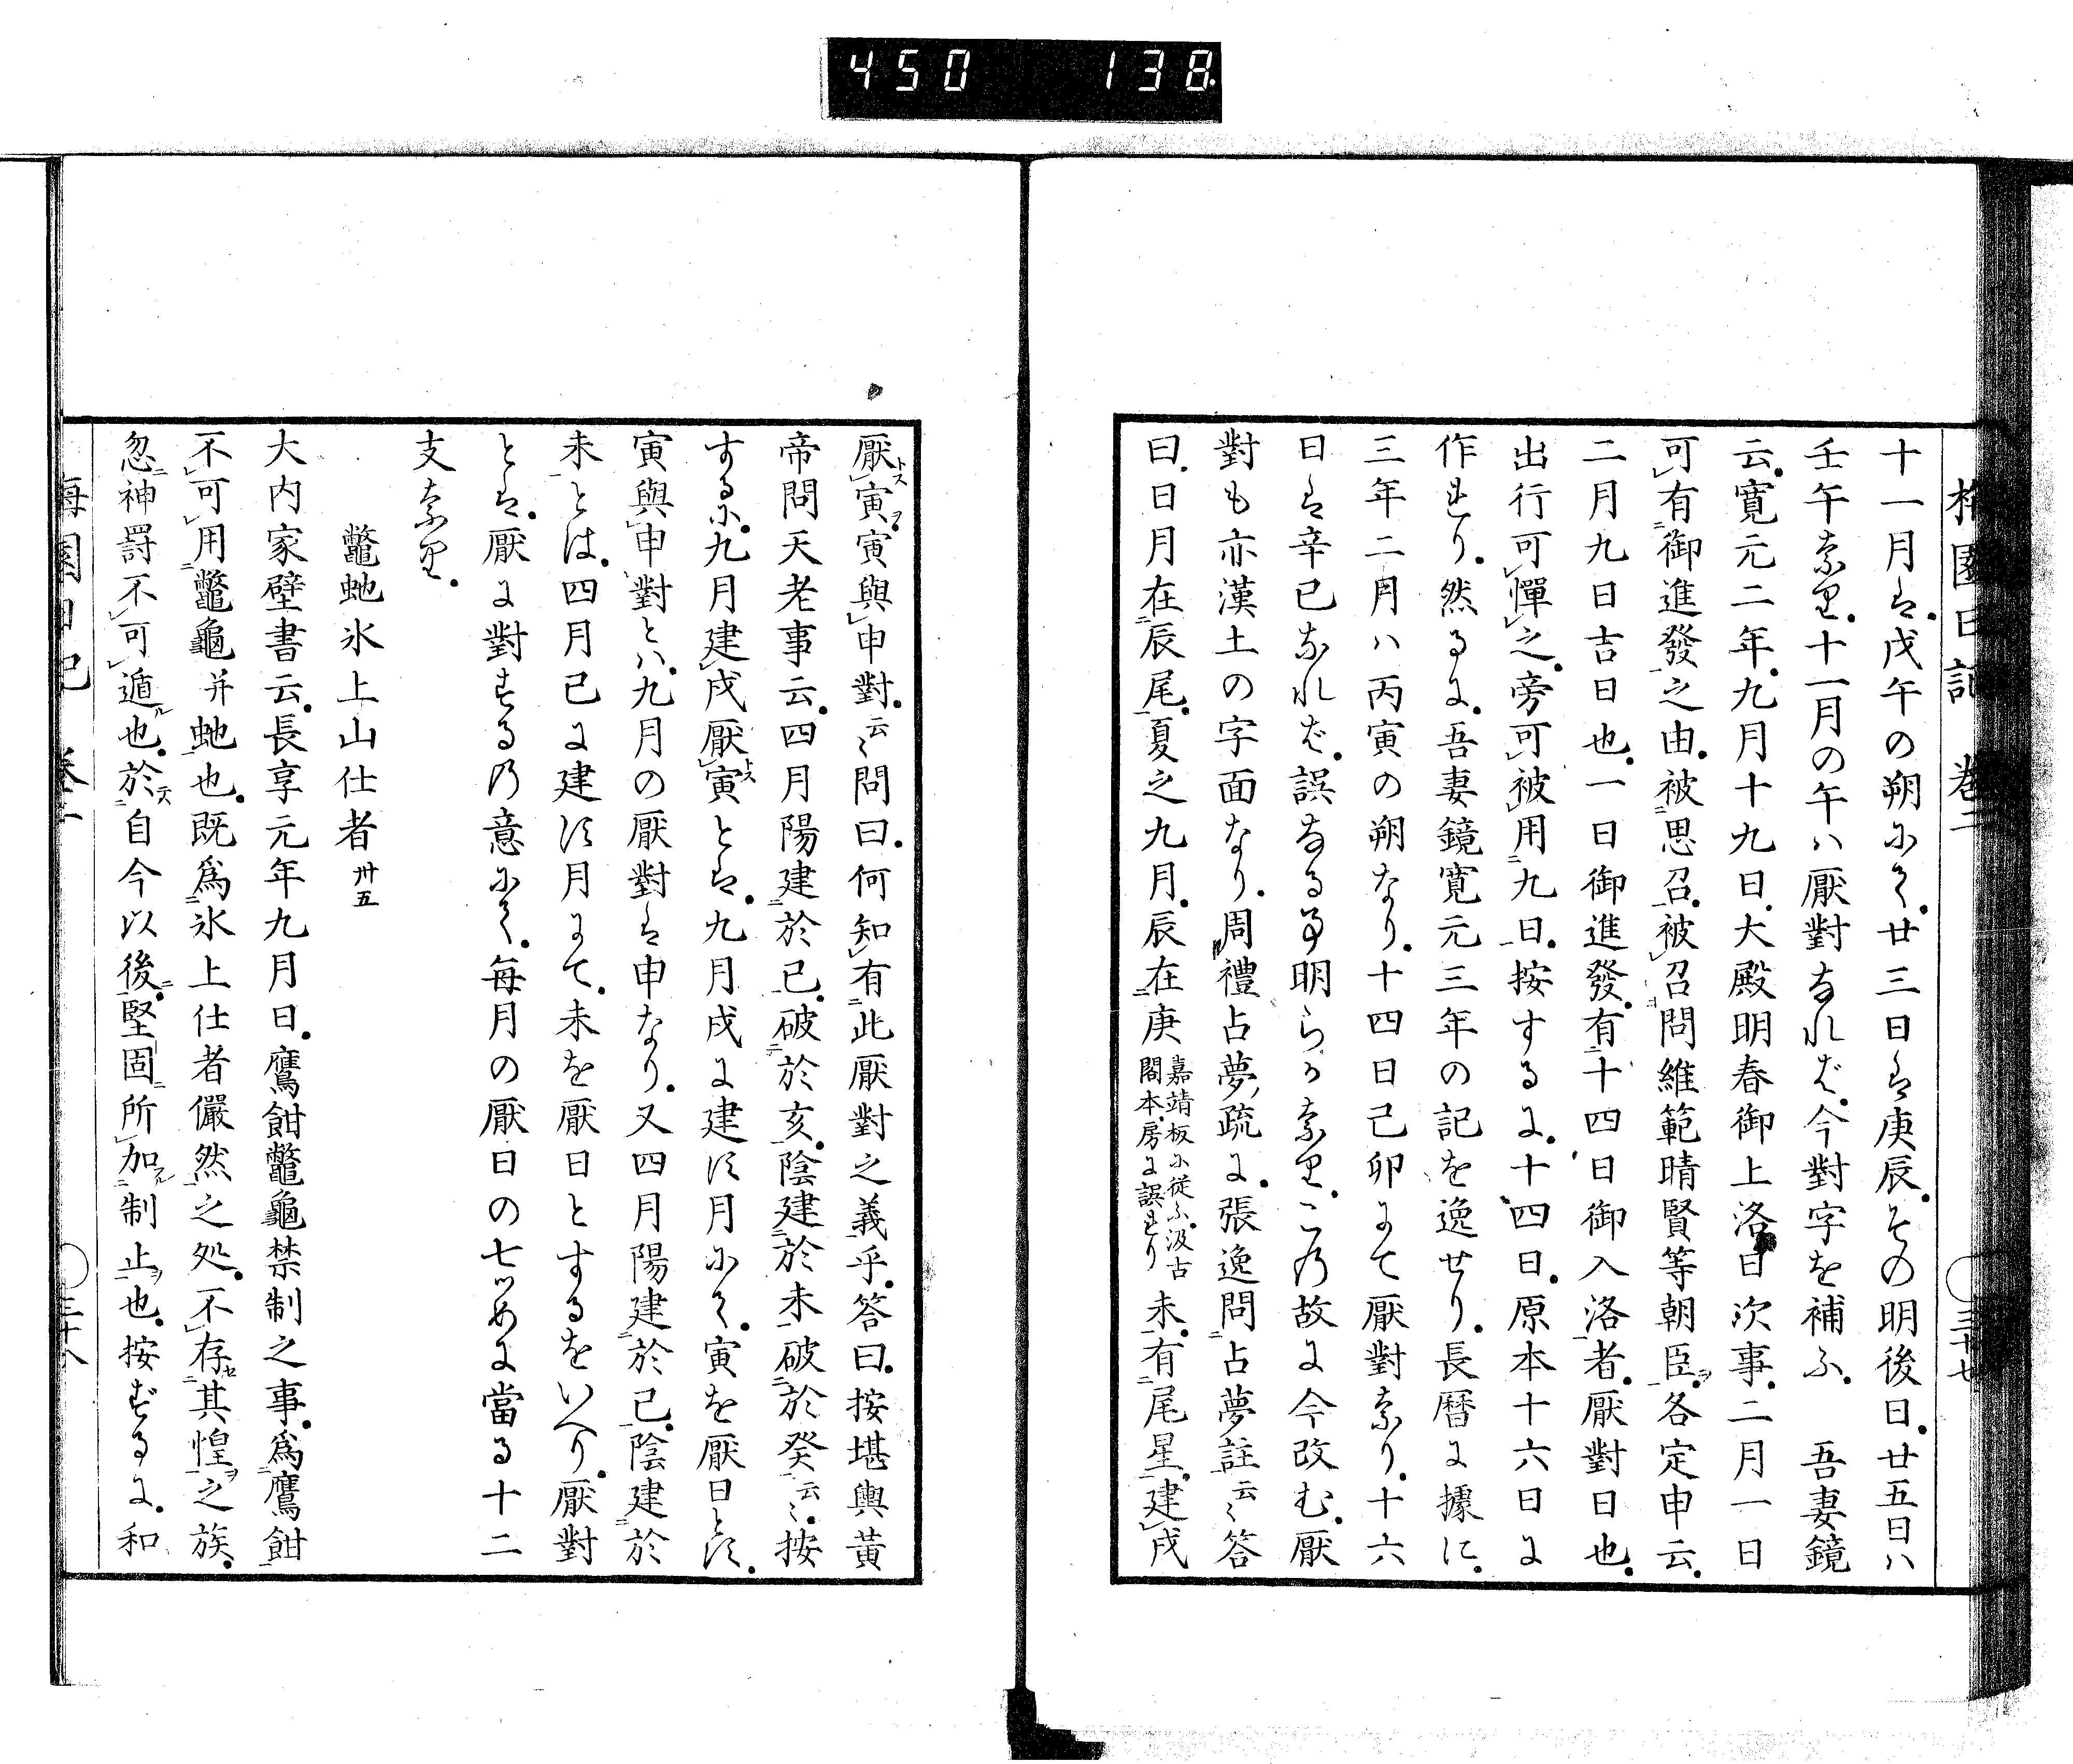 450 138
梅園日記 巻二 三十七
十一月は。戊午の朔にて。廿三日は庚辰。その明後日。廿五日ハ
壬午なり。十一月の午ハ厭對なれば。今對字を補ふ。 吾妻鏡
云。寛元二年。九月十九日。大殿明春御上洛日次事。二月一日
可㆑有㆓御進發㆒之由。被㆓思召㆒。被㆑召㆓問維範晴賢等朝臣㆒。各定申云。
二月九日吉日也。一日御進發。有㆓十四日御入洛㆒者。厭對日也。
出行可㆑憚㆑之。旁可㆑被㆑用㆓九日㆒。按するに。十四日。原本十六日に
作れり。然るに。吾妻鏡寛元三年の記を逸せり。長暦に據に。
三年二月ハ丙寅の朔なり。十四日己卯にて厭對なり。十六
日は辛巳なれば。誤なる事明らかなり。この故に今改む。厭
對も亦漢土の字面なり。周禮占夢疏に。張逸問㆓占夢註㆒云々答
曰。日月在㆓辰尾㆒。夏之九月。辰在㆓庚 嘉靖板に従ふ。汲古
閣本。房に誤れり 未㆒。有㆓尾星㆒。建㆑戌
厭㆑寅。寅與㆑申對。云々問曰。何知㆑有㆓此厭對之義㆒乎。答曰。按堪輿黄
帝問天老事云。四月陽建㆓於巳㆒。破㆓於亥㆒。陰建㆓於未㆒破㆓於癸㆒云々。按
するに。九月建㆑戌厭㆑寅とは。九月戌に建す月にて。寅を厭日とす。
寅與㆑申對とハ。九月の厭對は申なり。又四月陽建㆓於巳㆒。陰建㆓於
未㆒とは。四月巳に建す月にて。未を厭日とするをいへり。厭對
とは。厭に對する乃意にて。毎月の厭日の七ツめに當る十二
支なり。
鼈虵氷上山仕者 卅五
大内家壁書云。長享元年九月日。鷹餌鼈龜禁制之事。爲㆓鷹餌㆒
不㆑可㆑用㆓鼈龜并虵㆒也。既爲㆓氷上仕者儼然㆒之処。不㆑存㆓其惶㆒之族。
忽㆓神罸不㆑可㆑遁也。於㆓自今以後㆒。堅固㆓所㆑加㆓制止㆒也。按ずるに。和
梅園日記 巻二 三十八